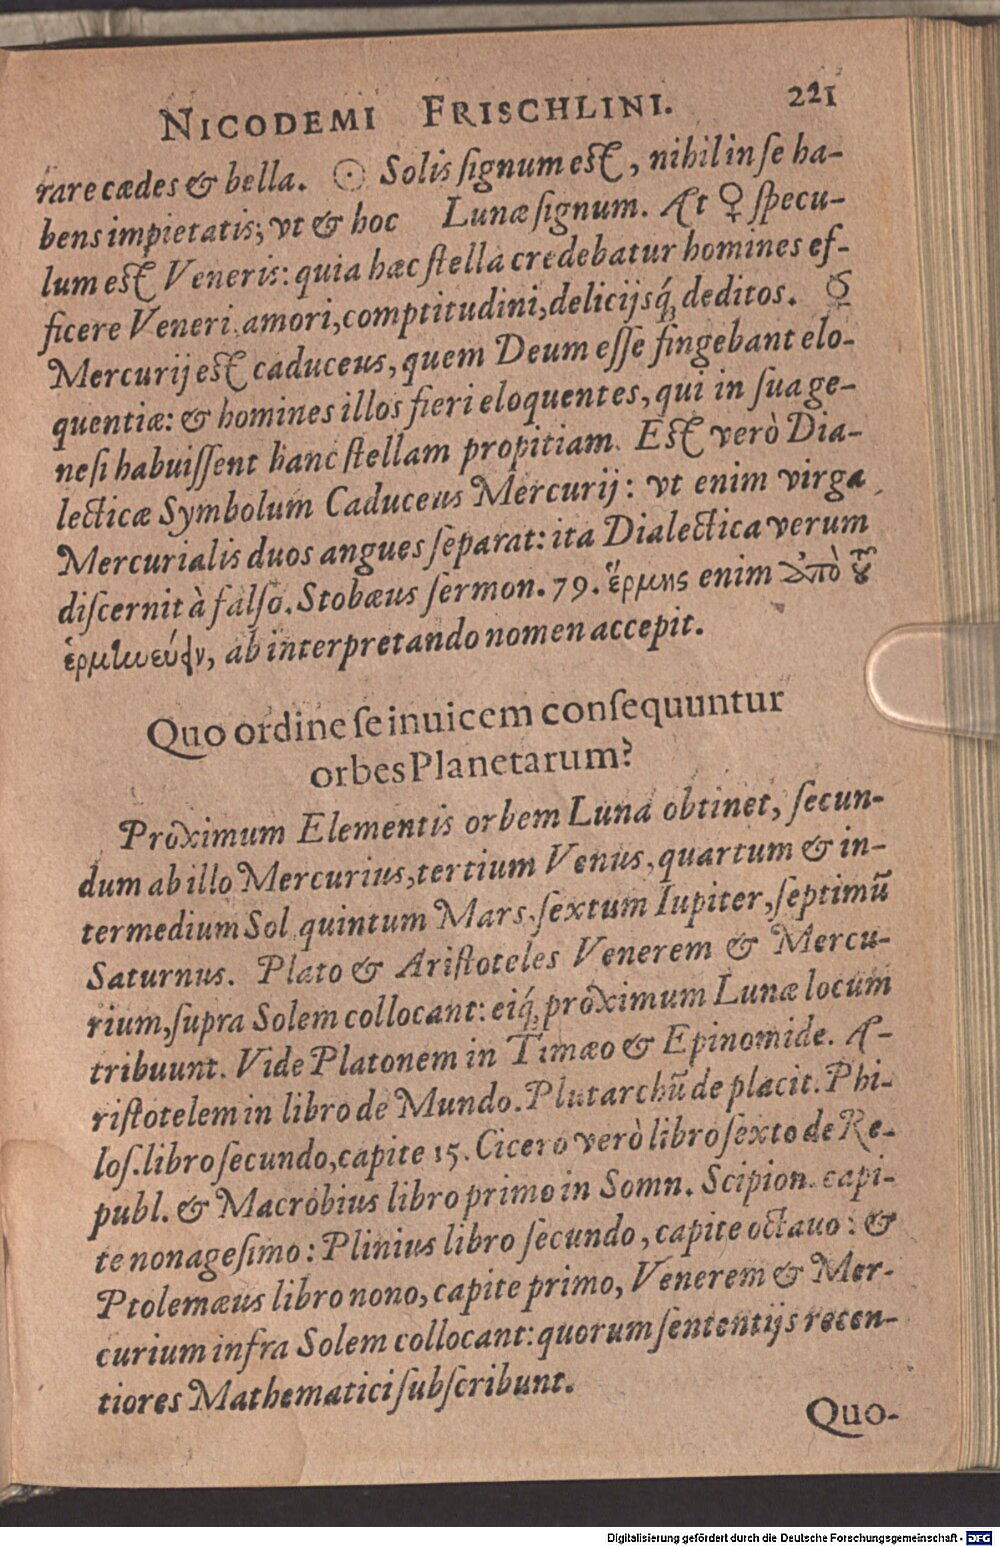 NICODEMI FRISCHLINI. 221
rare cædes & bella. ☉ Solis ſignum eſt, nihil in ſe ha-
bens impietatis; vt & hoc Lunæ ſignum. At ♀ ſpecu-
lum eſt Veneris: quia hac ſtella credebatur homines ef-
ficere Veneri, amori, comptitudini, delicijsq́; deditos. ☿
Mercurij eſt caduceus, quem Deum eſſe fingebant elo-
quentiæ: & homines illos fieri eloquentes, qui in ſua ge-
neſi habuiſſent hanc ſtellam propitiam. Eſt verò Dia-
lecticæ Symbolum Caduceus Mercurij: vt enim virga
Mercurialis duos angues ſeparat: ita Dialectica verum
diſcernit à falſo. Stobæus ſermon. 79. ἕρμης enim ἀπὸ τ͂ȣ
ἑρμηνεύειν, ab interpretando nomen accepit.
Quo ordine ſe inuicem conſequuntur
orbes Planetarum?
Proximum Elementis orbem Luna obtinet, ſecun-
dum ab illo Mercurius, tertium Venus, quartum & in-
termedium Sol quintum Mars, ſextum Iupiter, ſeptimū
Saturnus. Plato & Ariſtoteles Venerem & Mercu-
rium, ſupra Solem collocant: eiq́; proximum Lunæ locum
tribuunt. Vide Platonem in Timæo & Epinomide. A-
riſtotelem in libro de Mundo. Plutarchū de placit. Phi-
loſ. libro ſecundo, capite 15. Cicero verò libro ſexto de Re-
publ. & Macrobius libro primo in Somn. Scipion. capi-
te nonageſimo: Plinius libro ſecundo, capite octauo: &
Ptolemæus libro nono, capite primo, Venerem & Mer-
curium infra Solem collocant: quorum ſententijs recen-
tiores Mathematici ſubſcribunt.
Quo-
Digitalisierung gefördert durch die Deutsche Forschungsgemeinschaft - DFG